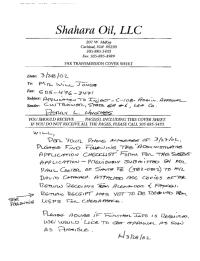 Shahara Oil, LLC
207 W. McKay
Carlsbad, NM 88220
505-885-5433
Fax 505-885-4989
FAX TRANSMISSION COVER SHEET
Date: 3/28/02
To: Mr. Will Jones
Fax: 505-476-3471
Subject: Application To Inject - C-108 Admin. Approval
Sender: Perry L. Hughes
YOU SHOULD RECEIVE PAGE(S), INCLUDING THIS COVER SHEET.
IF YOU DO NOT RECEIVE ALL THE PAGES, PLEASE CALL 505-885-5433.
Will,
Per Your Phone Message of 3/27/02,
Please Find Following The "Administrative
Application Checklist" Form For The Subject
Application - Previously Submitted By Mr.
of Santa Fe To Mr.
David Catanach. Attached Are Copies of The
Return Receipts From
Return Receipt Has Yet To Be From The
USPS For
Please Advise If Further Info Is Required.
We Would Like To Get Approval As Soon
As Possible.
3/28/02